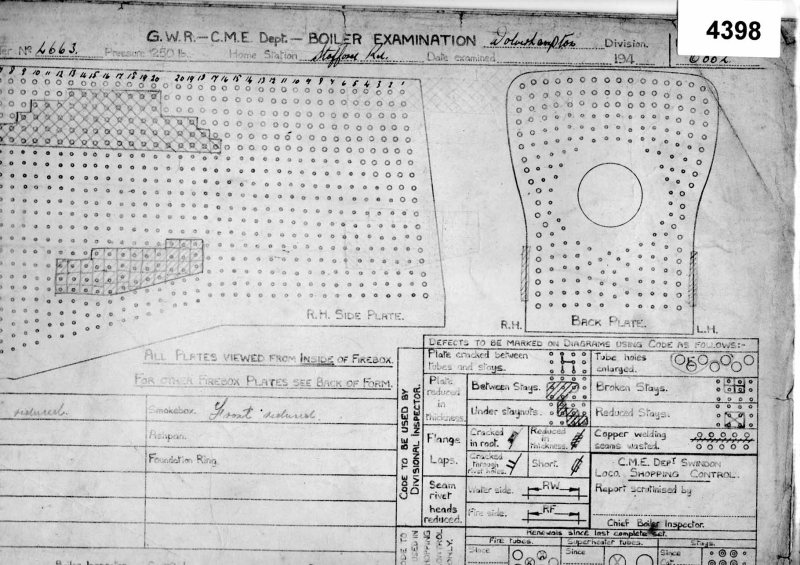 4398
G.W.R.—C.M.E. Dept.— BOILER EXAMINATION Wolverhampton Division.
Nº 2663. Pressure 250 lb. Home Station Stafford Rd. Date examined 194
8 9 10 11 12 13 14 15 16 17 18 19 20 20 19 18 17 16 15 14 13 12 11 10 9 8 7 6 5 4 3 2 1
R.H. SIDE PLATE.
R.H. BACK PLATE. L.H.
ALL PLATES VIEWED FROM INSIDE OF FIREBOX.
FOR OTHER FIREBOX PLATES SEE BACK OF FORM.
reduced. Smokebox. Front reduced
Ashpan.
Foundation Ring.
DEFECTS TO BE MARKED ON DIAGRAMS USING CODE AS FOLLOWS:-
CODE TO BE USED BY DIVISIONAL INSPECTOR.
Plate cracked between tubes and stays.
Tube holes enlarged.
Plate reduced in thickness.
Between Stays.
Broken Stays.
Under staynuts.
Reduced Stays.
Flange
Cracked in root.
Reduced in thickness.
Copper welding seams wasted.
Laps.
Cracked through rivet holes.
Short.
C.M.E. DEPT SWINDON
LOCO. SHOPPING CONTROL.
Report scrutinised by
Chief Boiler Inspector.
Seam rivet heads reduced.
Water side. RW
Fire side. RF
Renewals since last complete set.
Fire tubes. Superheater tubes. Stays.
Since Since Since